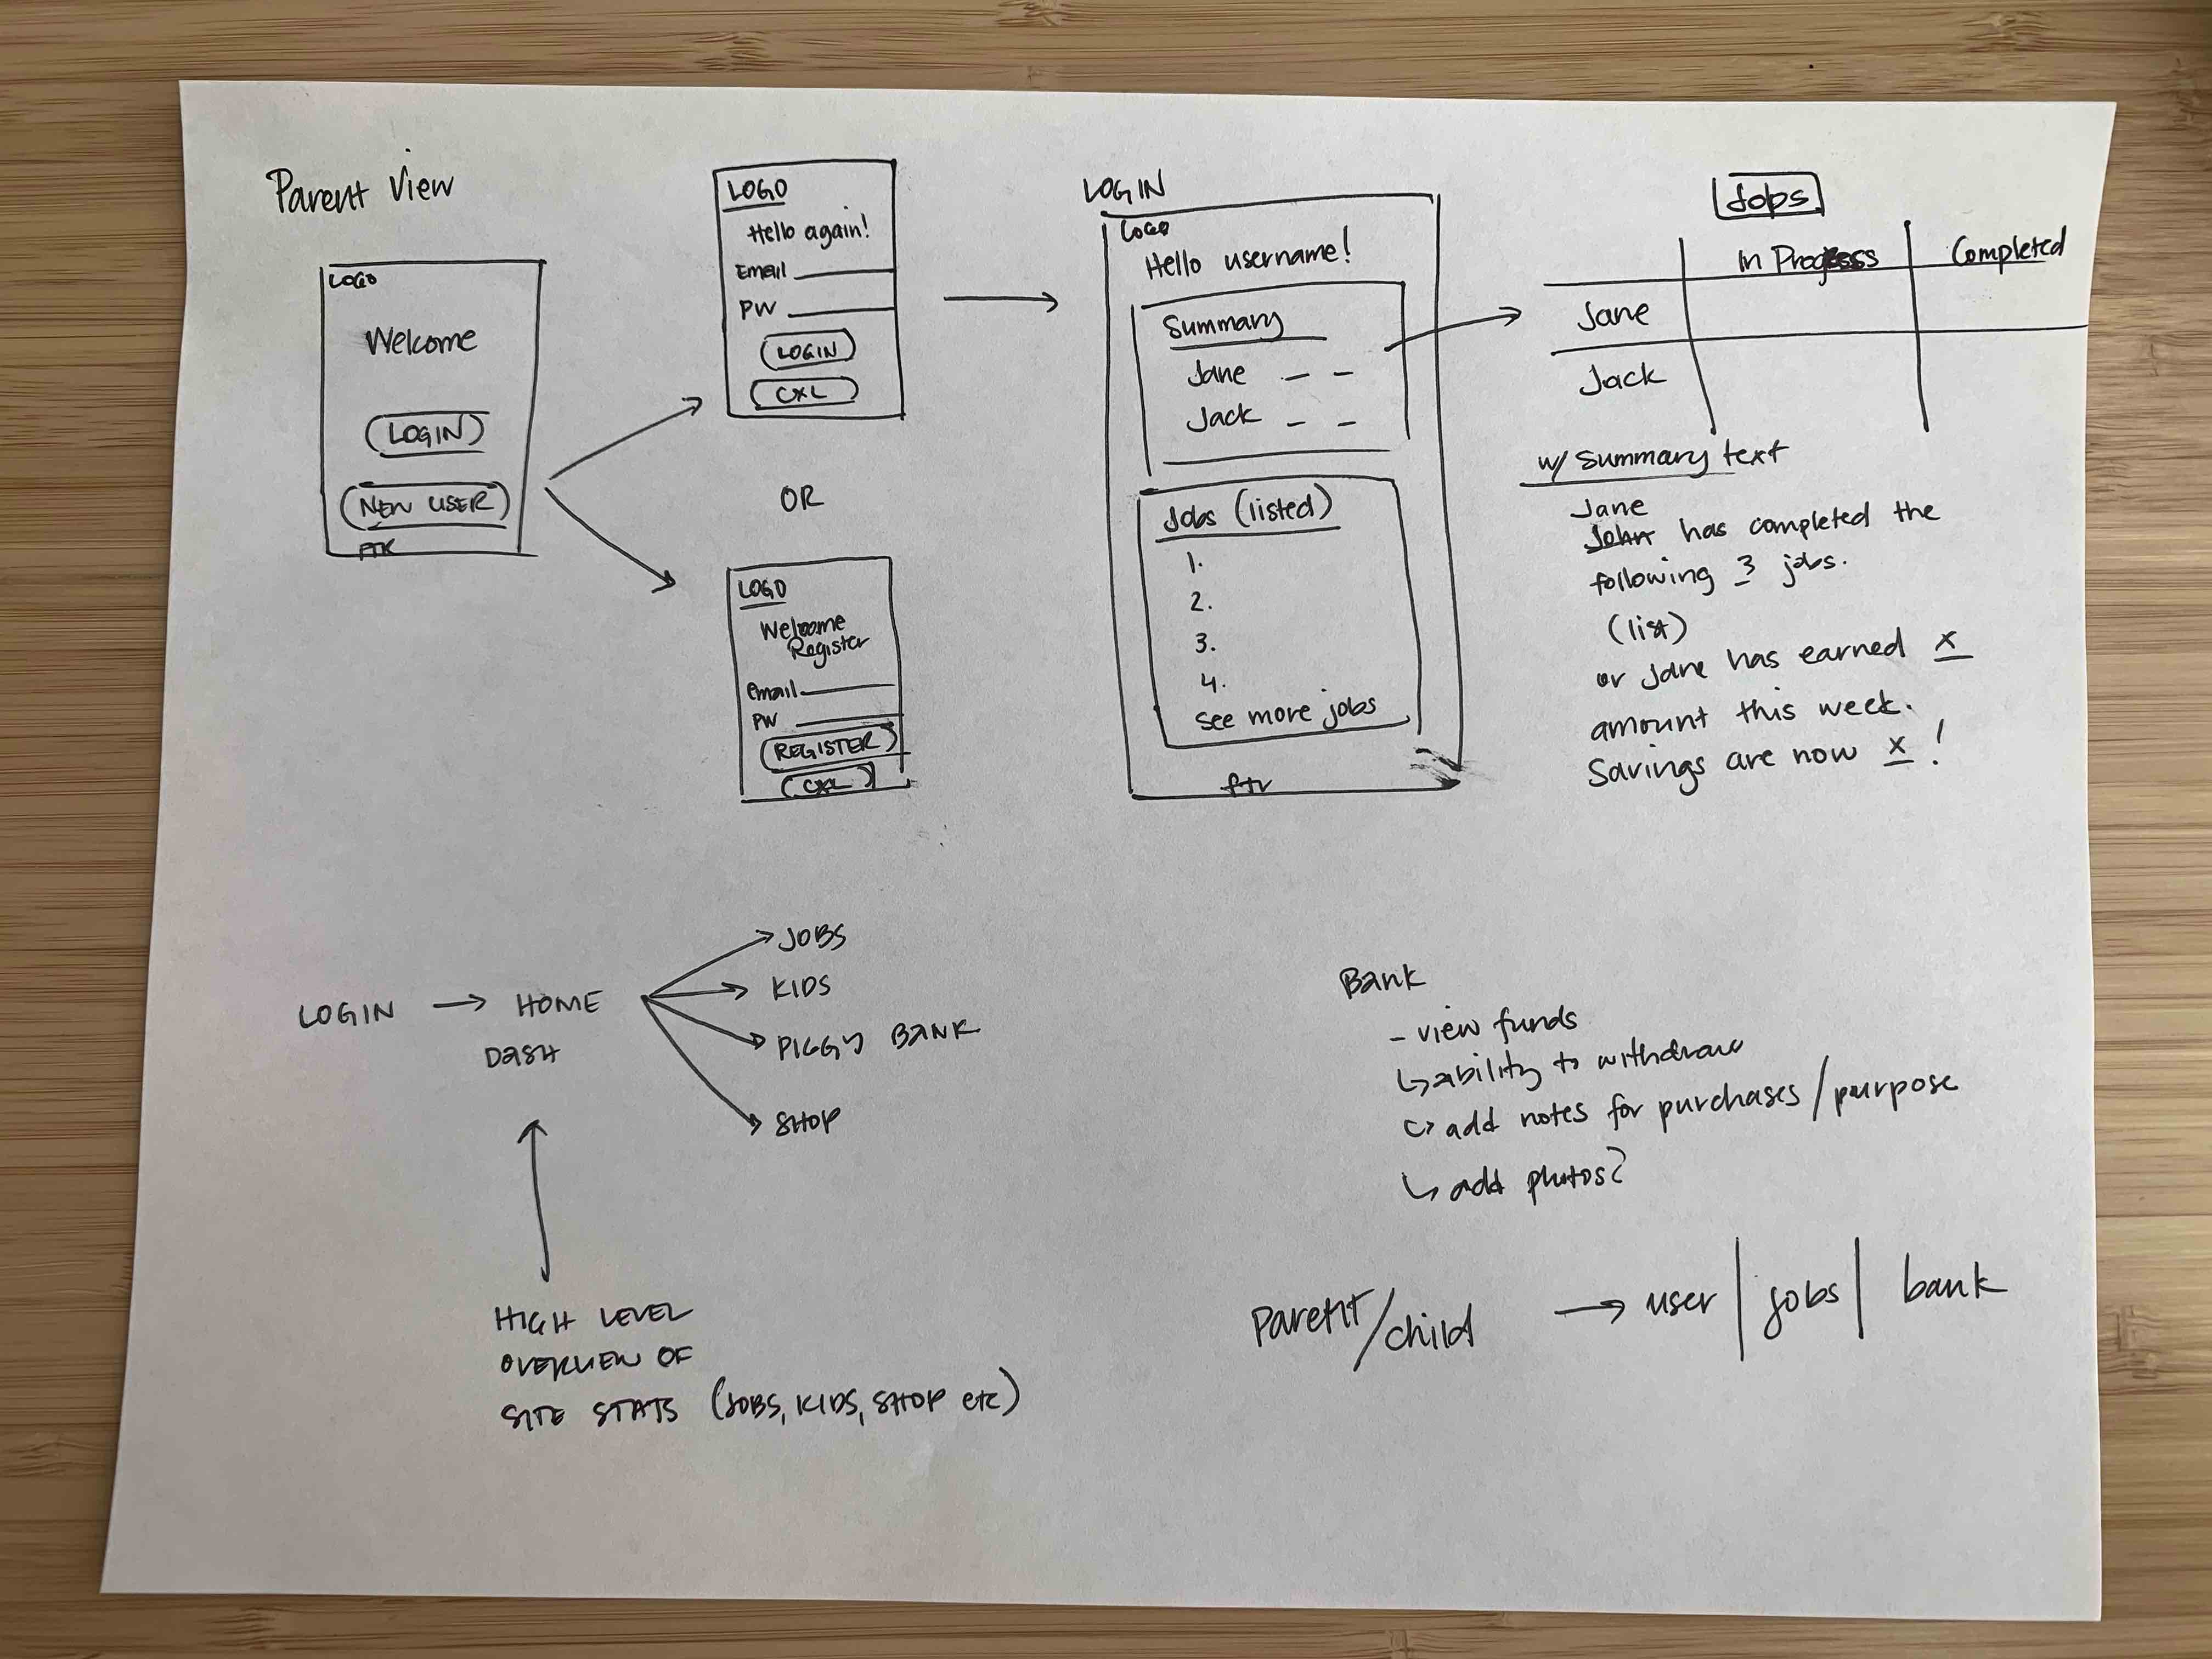 Parent View
LOGO
Welcome
LOGIN
NEW USER
LOGO
Hello again!
Email
PW
LOGIN
CXL
OR
LOGO
Welcome
Register
email
PW
REGISTER
CXL
LOGIN
LOGO
Hello username!
Summary
Jane – –
Jack – –
Jobs (listed)
1.
2.
3.
4.
see more jobs
ftr
Jobs
In Progress
Completed
Jane
Jack
w/ summary text
Jane
John has completed the
following 3 jobs.
(list)
or Jane has earned x
amount this week.
Savings are now x!
LOGIN → HOME
DASH
JOBS
KIDS
PIGGY BANK
SHOP
HIGH LEVEL
OVERVIEW OF
SITE STATS (JOBS, KIDS, SHOP etc)
Bank
- view funds
↳ ability to withdraw
↳ add notes for purchases/purpose
↳ add photos?
Parent/child → user | jobs | bank